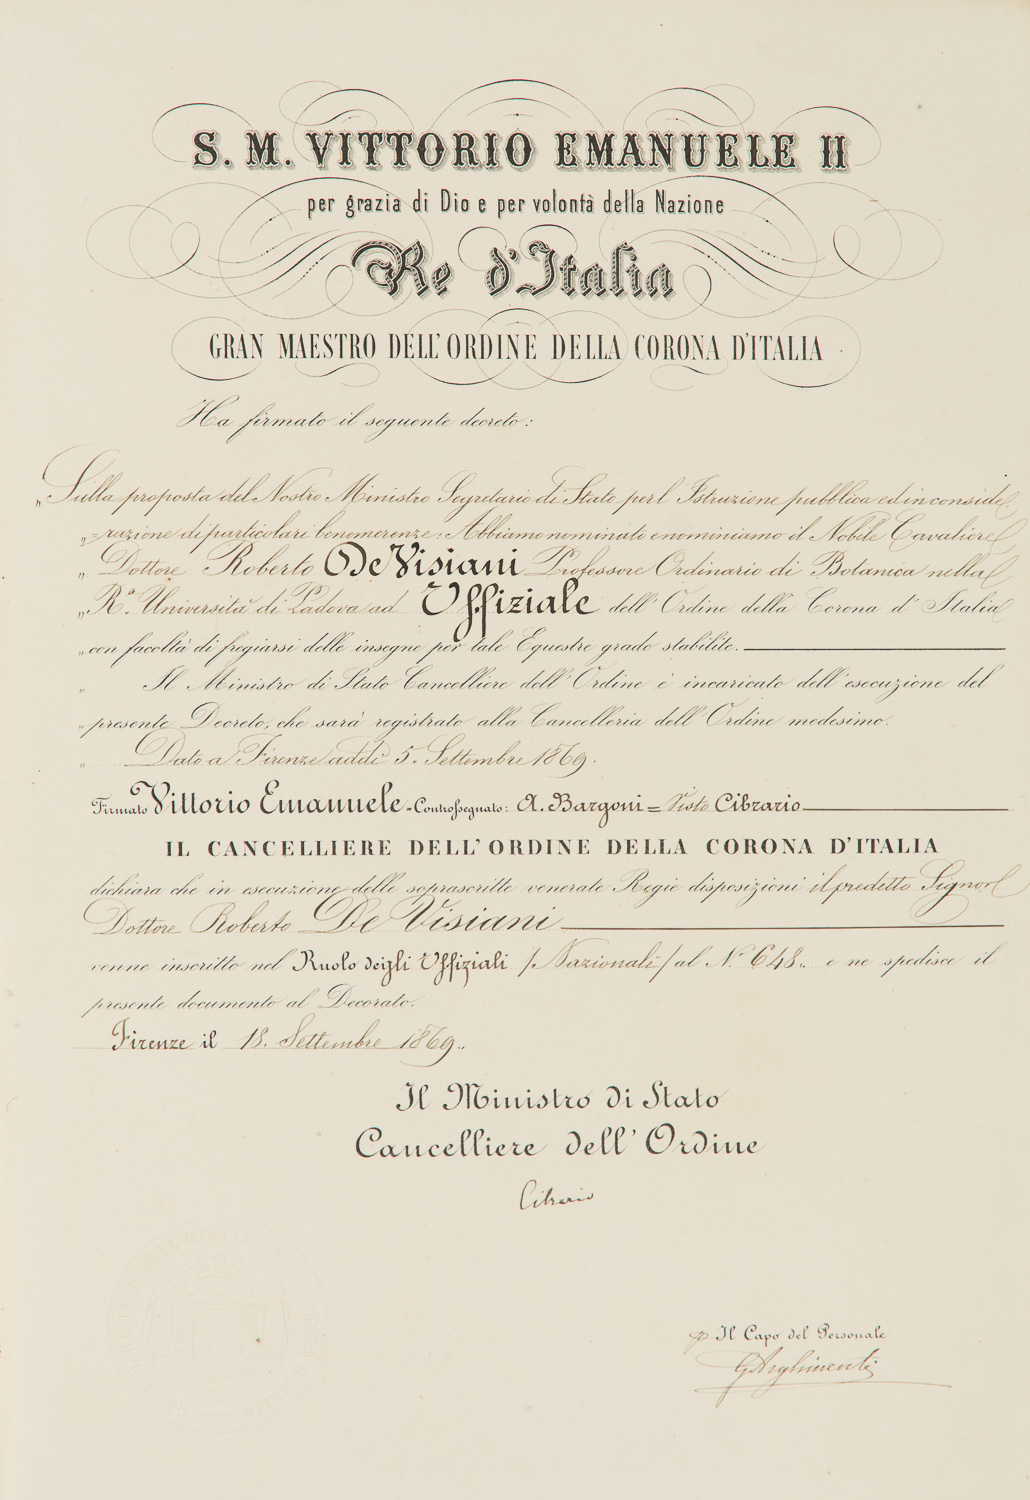 S. M. VITTORIO EMANUELE II
per grazia di Dio e per volontà della Nazione
Re d'Italia
GRAN MAESTRO DELL'ORDINE DELLA CORONA D'ITALIA
Ha firmato il seguente decreto:
„ Sulla proposta del Nostro Ministro Segretario di Stato per l'Istruzione pubblica ed in conside
„ =razione di particolari benemerenze: Abbiamo nominato e nominiamo il Nobile Cavaliere
„ Dottore Roberto De Visiani Professore Ordinario di Botanica nella
„ R.ª Università di Padova ad Uffiziale dell'Ordine della Corona d'Italia
„ con facoltà di fregiarsi delle insegne per tale Equestre grado stabilite.
„ Il Ministro di Stato Cancelliere dell'Ordine è incaricato dell'esecuzione del
„ presente Decreto, che sarà registrato alla Cancelleria dell'Ordine medesimo.
„ Dato a Firenze addì 5. Settembre 1869.
Firmato Vittorio Emanuele - Controssegnato: A. Bargoni = Visto Cibrario
IL CANCELLIERE DELL'ORDINE DELLA CORONA D'ITALIA
dichiara che in esecuzione delle soprascritte venerate Regie disposizioni il predetto Signor
Dottore Roberto De Visiani
venne inscritto nel Ruolo deigli Uffiziali /Nazionali/ al N.º 648.. e ne spedisce il
presente documento al Decorato.
Firenze il 18. Settembre 1869..
Il Ministro di Stato
Cancelliere dell'Ordine
Cibrario
p Il Capo del Personale